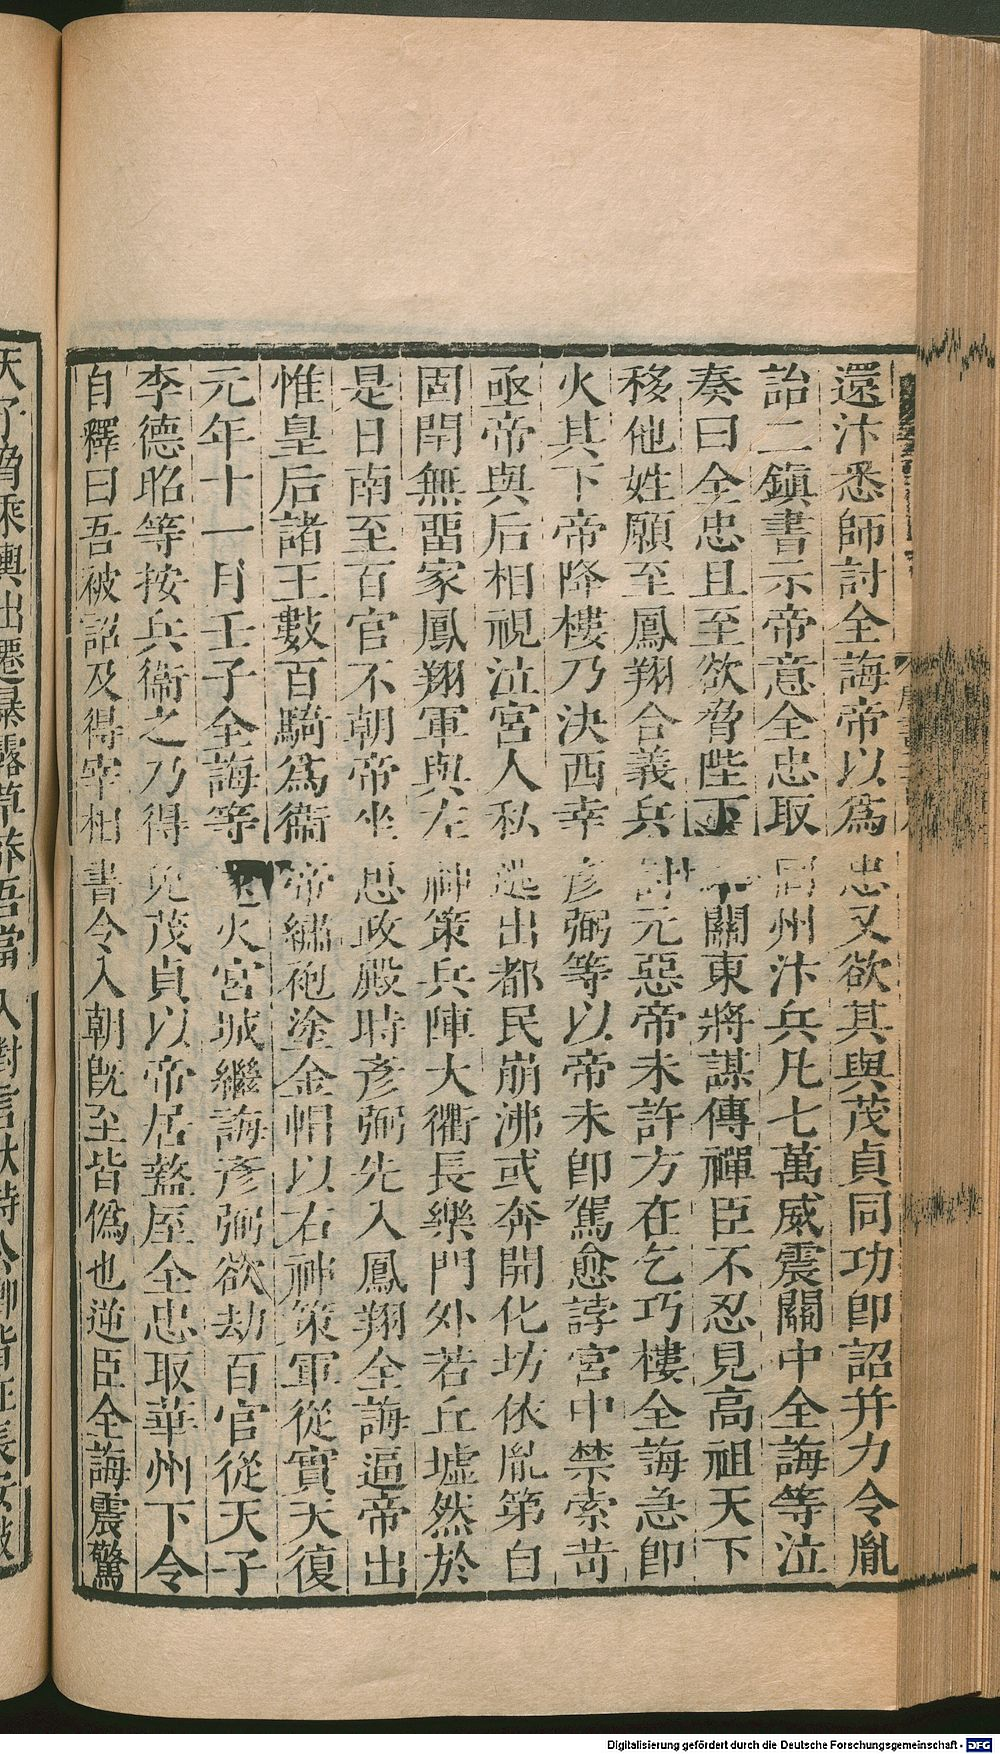 還汴悉師討全誨帝以爲忠又欲其與茂貞同功即詔并力令胤
詒二鎮書示帝意全忠取同州汴兵凡七萬威震關中全誨等泣
奏曰全忠且至欲脅陛下幸關東將謀傳禪臣不忍見高祖天下
移他姓願至鳳翔合義兵討元惡帝未許方在乞巧樓全誨急即
火其下帝降樓乃決西幸彥弼等以帝未即駕愈誖宮中禁索苛
亟帝與后相視泣宮人私逃出都民崩沸或奔開化坊依胤第自
固閈無畱家鳳翔軍與左神策兵陣大衢長樂門外若丘墟然於
是日南至百官不朝帝坐思政殿時彥弼先入鳳翔全誨逼帝出
惟皇后諸王數百騎爲衞帝繡袍塗金帽以右神策軍從實天復
元年十一月壬子全誨等火宮城繼誨彥弼欲劫百官從天子
李德昭等按兵衞之乃得免茂貞以帝居盩厔全忠取華州下令
自釋曰吾被詔及得宰相書令入朝既至皆僞也逆臣全誨震驚
天子
乘輿出遷暴露草莽吾當入對言狀時公卿皆在長安
Digitalisierung gefördert durch die Deutsche Forschungsgemeinschaft - DFG